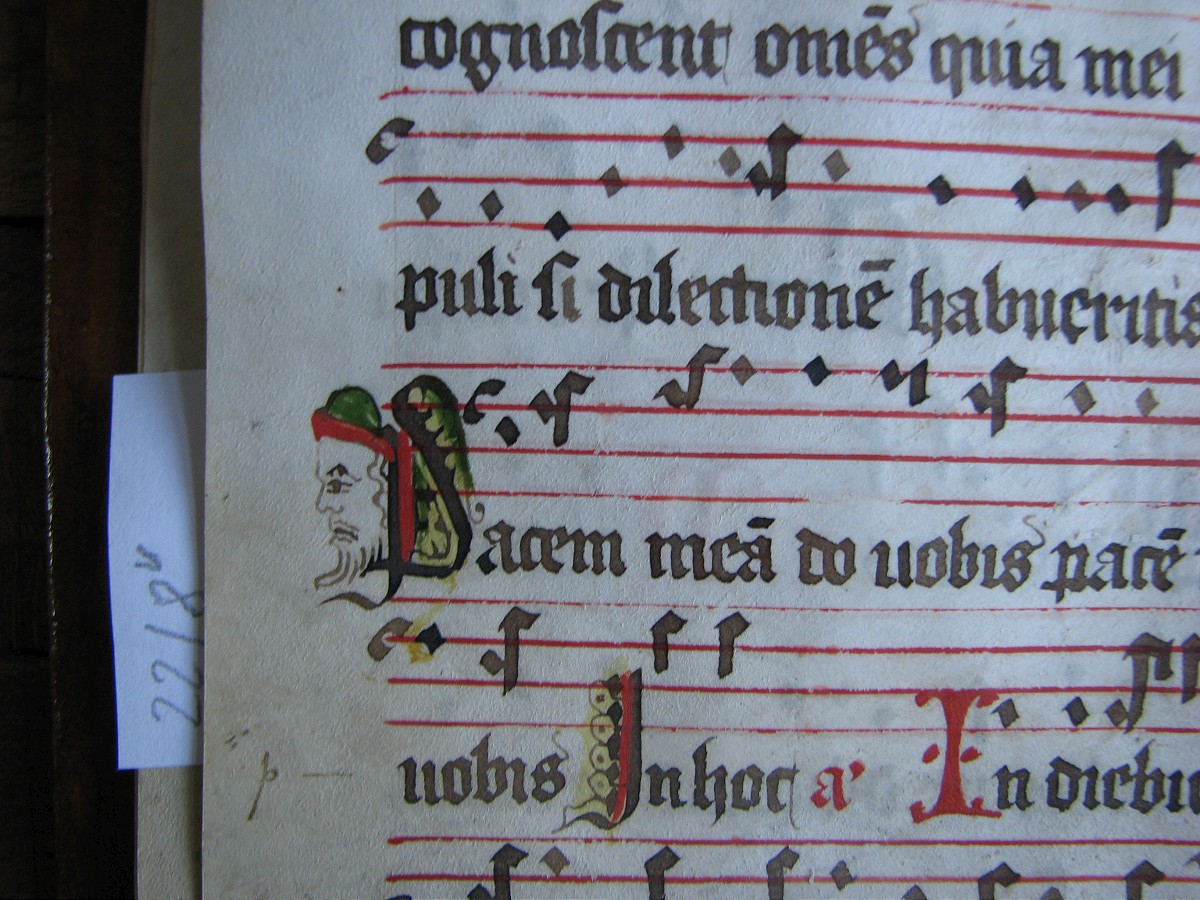 cognoscent omēs quia mei
puli si dilectionē habueritis
Pacem meā do uobis pacē
uobis In hoc a' In diebu
p
2218v